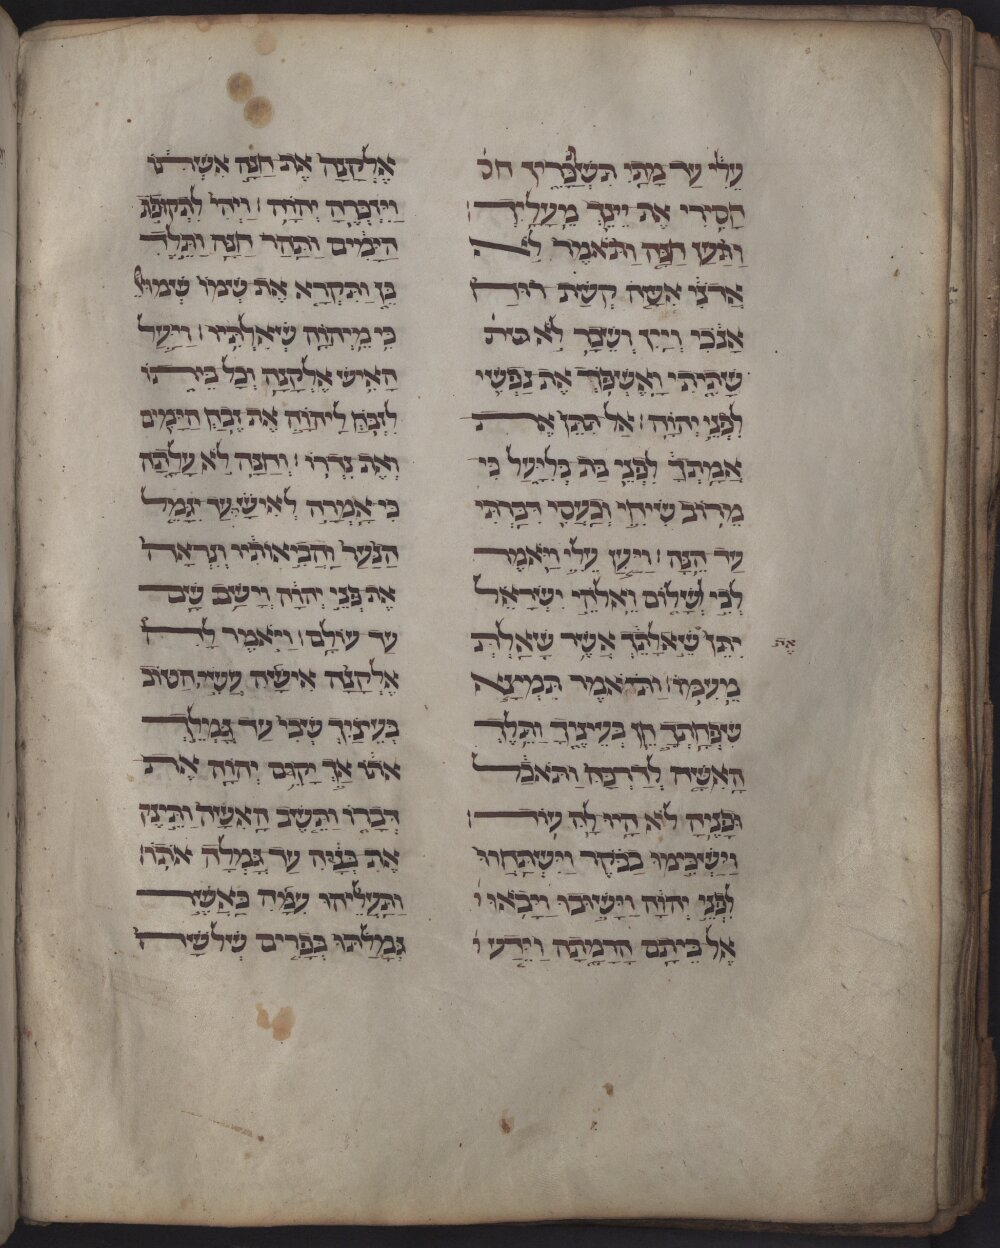 עֵלִי עַד מָתַי תִּשְׁכָּרִין חס
הָסִירִי אֶת יֵינֵךְ מֵעָלָיִךְ׃
וַתַּעַן חַנָּה וַתֹּאמֶר לֹא
אֲדֹנִי אִשָּׁה קְשַׁת רוּחַ
אָנֹכִי וְיַיִן וְשֵׁכָר לֹא שתי
שָׁתִיתִי וָאֶשְׁפֹּךְ אֶת נַפְשִׁי
לִפְנֵי יְהוָה׃ אַל תִּתֵּן אֶת
אֲמָתְךָ לִפְנֵי בַּת בְּלִיָּעַל כִּי
מֵרוֹב שִׂיחִי וְכַעְסִי דִּבַּרְתִּי
עַד הֵנָּה׃ וַיַּעַן עֵלִי וַיֹּאמֶר
לְכִי לְשָׁלוֹם וֵאלֹהֵי יִשְׂרָאֵל
יִתֵּן שֵׁאלָתֵךְ אֲשֶׁר שָׁאַלְתְּ
אֶת
מֵעִמּוֹ׃ וַתֹּאמֶר תִּמְצָא
שִׁפְחָתְךָ חֵן בְּעֵינֶיךָ וַתֵּלֶךְ
הָאִשָּׁה לְדַרְכָּהּ וַתֹּאכַל
וּפָנֶיהָ לֹא הָיוּ לָהּ עוֹד׃
וַיַּשְׁכִּימוּ בַבֹּקֶר וַיִּשְׁתַּחֲווּ
לִפְנֵי יְהוָה וַיָּשׁוּבוּ וַיָּבֹאוּ
אֶל בֵּיתָם הָרָמָתָה וַיֵּדַע
אֶלְקָנָה אֶת חַנָּה אִשְׁתּוֹ
וַיִּזְכְּרֶהָ יְהוָה׃ וַיְהִי לִתְקֻפוֹת
הַיָּמִים וַתַּהַר חַנָּה וַתֵּלֶד
בֵּן וַתִּקְרָא אֶת שְׁמוֹ שְׁמוּאֵל
כִּי מֵיְהוָה שְׁאִלְתִּיו׃ וַיַּעַל
הָאִישׁ אֶלְקָנָה וְכָל בֵּיתוֹ
לִזְבֹּחַ לַיהוָה אֶת זֶבַח הַיָּמִים
וְאֶת נִדְרוֹ׃ וְחַנָּה לֹא עָלָתָה
כִּי אָמְרָה לְאִישָׁהּ עַד יִגָּמֵל
הַנַּעַר וַהֲבִיאוֹתִיו וְנִרְאָה
אֶת פְּנֵי יְהוָה וְיָשַׁב שָׁם
עַד עוֹלָם׃ וַיֹּאמֶר לָהּ
אֶלְקָנָה אִישָׁהּ עֲשִׂי הַטּוֹב
בְּעֵינַיִךְ שְׁבִי עַד גָּמְלֵךְ
אֹתוֹ אַךְ יָקֵם יְהוָה אֶת
דְּבָרוֹ וַתֵּשֶׁב הָאִשָּׁה וַתֵּינֶק
אֶת בְּנָהּ עַד גָּמְלָהּ אֹתוֹ׃
וַתַּעֲלֵיהוּ עִמָּהּ כַּאֲשֶׁר
גְּמָלַתּוּ בְּפָרִים שְׁלֹשָׁה